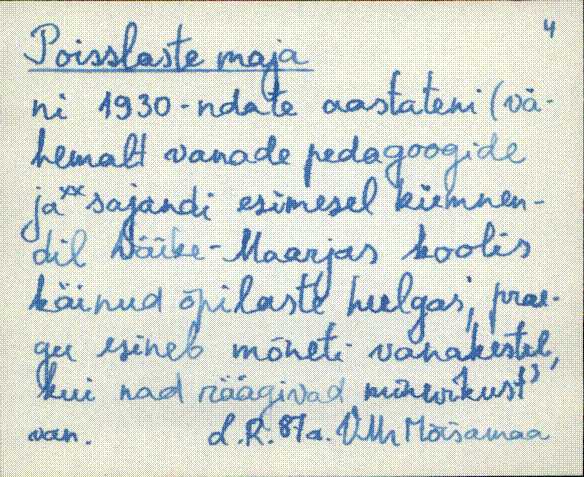 4
Poisslaste maja
ni 1930-ndate aastateni (vä-
hemalt vanade pedagoogide
ja xx sajandi esimesel kümnen-
dil Väike-Maarjas koolis
käinud õpilaste hulgas), prae-
gu esineb mõneti vanakestel,
kui nad räägivad minevikust
van. d.R. 87a. VMr Mõisamaa